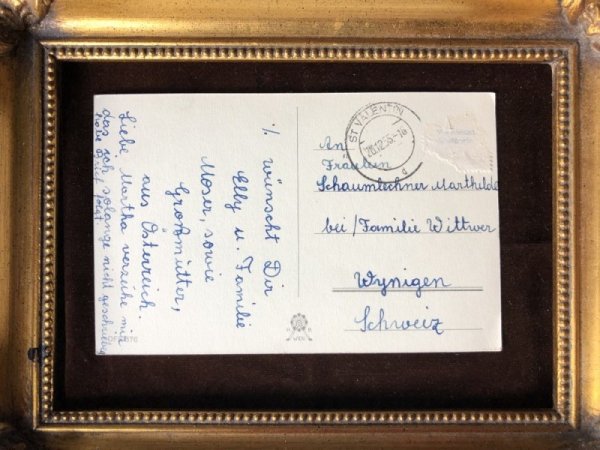 ./. wünscht Dir
Elly u. Familie
Moser, sowie
Großmutter,
aus Österreich.
Liebe Martha verzeihe mir
das ich solange nicht geschrieben
habe Brief folgt
ST VALENTIN
An
Fräulein
Schaumlechner Marthilde
bei/Familie Wittwer
Wynigen
Schweiz
WIEN